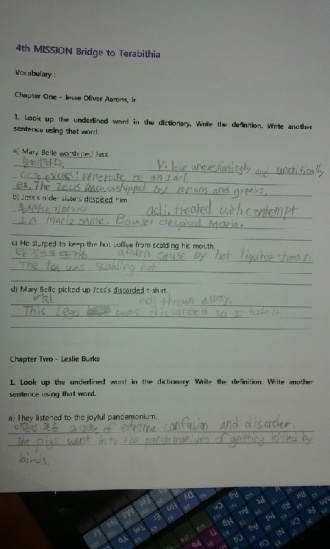 4th MISSION Bridge to Terabithia
Vocabulary :
Chapter One - Jesse Oliver Aarons, Jr
1. Look up the underlined word in the dictionary. Write the definition. Write another
sentence using that word.
a) Mary Belle worshiped Jess.
V. love unquestioningly and uncritically
venerate as an idol.
ex. The Zeus worshipped by romans and greeks.
b) Jess's older sisters despised him
adj. treated with contempt
In Mario game. Bowser despised Mario.
c) He slurped to keep the hot coffee from scalding his mouth.
a burn cause by hot liquid or steam
The tea was scalding hot
d) Mary Belle picked up Jess's discarded t-shirt.
adj thrown away.
This Lego was discarded so I take it.
Chapter Two - Leslie Burke
1. Look up the underlined word in the dictionary. Write the definition. Write another
sentence using that word.
a) They listened to the joyful pandemonium.
a state of extreme confusion and disorder.
The pigs went into the pandemonium of getting killed by
birds.